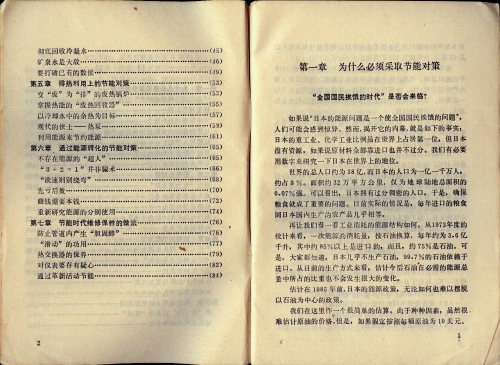 彻底回收冷凝水……(45)
矿泉水是大敌……(46)
要打破已有的数据……(49)
第五章 得热利用上的节能对策……(53)
变“废”为“排”的废热锅炉……(53)
掌握热能的“废热回收器”……(55)
以冷却水中的余热为目标……(57)
现代的挟士——热泵……(59)
利用能源来节约能源……(61)
第六章 通过能源转化的节能对策……(65)
不存在能源的“超人”……(65)
“3+2=1”并非骗术……(66)
“欲速则则烧弯”……(68)
先亏后盈……(70)
赚钱还要本钱……(72)
重新研究能源的分别使用……(74)
第七章 节能时代维修保养的做法……(76)
防止管道内产生“胆固醇”……(76)
“滑动”的功用……(77)
热交换器的保养……(79)
对仪表要存有疑心……(82)
通过革新活动节能……(84)
2
第一章 为什么必须采取节能对策
“全国国民挨饿的时代”是否会来临?
如果说“日本的能源问题是一个使全国国民挨饿的问题”,
人们可能会感到惊异。然而,揭开它的内幕,就是如下的事实:
日本的重工业、化学工业比例虽在世界上占居第一位,但日本
没有资源,如果说原材料全部靠进口也并不过分。我们有必要
用数字来研究一下日本在世界上的地位。
世界的总人口约为38亿,而日本的人口为一亿一千万人,
约占3%。面积约32万平方公里,仅为地球陆地总面积的
0.07%强。可以看出,日本拥有过分稠密的人口。于是,确保
粮食就成了重要的问题。目前实际的情况是,每年进口的粮食
同日本国内生产的农产品几乎相等。
再让我们想像一看工业消耗的能源结构如何。从1973年度的
统计来看,一次能源的消耗量,按石油换算,每年约为3.6亿
千升,其中约85%以上是进口的,而且,约75%是石油。可
是,大家都知道,日本几乎不生产石油,99.7%的石油依赖于
进口。从目前的生产方式来看,估计今后石油在必需的能源总
量中所占的比重也不会发生很大的变化。
估计在1985年前,日本的能源政策,无论如何也难以摆脱
以石油为中心的政策。
我们在这里作一个很简单的估算。由于种种原因,虽然很
难估计原油的价格,但是,如果假定按源每桶原油为10美元、
1